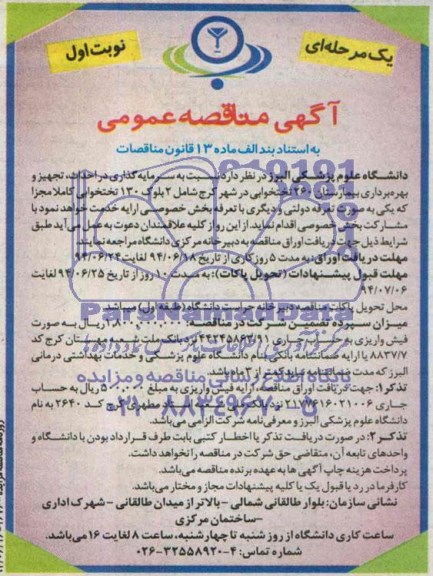 یک مرحله‌ای
نوبت اول
آگهی مناقصه عمومی
به استناد بند الف ماده ۱۳ قانون مناقصات
دانشگاه علوم پزشکی البرز در نظر دارد نسبت به سرمایه گذاری در احداث، تجهیز و
بهره‌برداری بیمارستان ۲۶۰ تختخوابی در شهر کرج شامل ۲ بلوک ۱۳۰ تختخوابی کاملا مجزا
که یکی به صورت تعرفه دولتی و دیگری با تعرفه بخش خصوصی ارایه خدمت خواهد نمود با
مشارکت بخش خصوصی اقدام نماید. از این رو از کلیه علاقمندان دعوت به عمل می‌آید طبق
شرایط ذیل جهت دریافت اوراق مناقصه به دبیرخانه مرکزی دانشگاه مراجعه نمایند.
مهلت دریافت اوراق: به مدت ۵ روز کاری از تاریخ ۹۴/۰۶/۱۸ لغایت ۹۴/۰۶/۲۴
مهلت قبول پیشنهادات (تحویل پاکات): به مدت ۱۰ روز از تاریخ ۹۴/۰۶/۲۵ لغایت
۹۴/۰۷/۰۶
محل تحویل پاکات مناقصه دبیرخانه حراست دانشگاه (طبقه اول) میباشد.
میزان سپرده تضمین شرکت در مناقصه: ریال به صورت
فیش واریزی به جاری نزد بانک ملت شعبه کرج کد
۸۸۳۷/۷ یا ارایه ضمانتنامه بانکی بنام دانشگاه علوم پزشکی و خدمات بهداشتی درمانی
البرز که مدت ضمانتنامه نباید کمتر از ۳ ماه باشد.
تذکر۱: جهت دریافت اوراق مناقصه، ارایه فیش واریزی به مبلغ ریال به حساب
جاری ۲۱۷۷۶۱۶۰۲۱۰۰۶ نزد بانک مطهری کرج کد ۲۶۴۰ به نام
دانشگاه علوم پزشکی البرز و معرفی‌نامه شرکت الزامی می‌باشد.
تذکر ۲: در صورت دریافت تذکر یا اخطار کتبی بابت طرف قرارداد بودن با دانشگاه و
واحدهای تابعه آن، متقاضی حق شرکت در مناقصه را نخواهد داشت.
پرداخت هزینه چاپ آگهی ها به عهده برنده مناقصه می‌باشد.
کارفرما در رد یا قبول یک یا کلیه پیشنهادات مجاز و مختار می‌باشد.
نشانی سازمان: بلوار طالقانی شمالی - بالاتر از میدان طالقانی - شهرک اداری
- ساختمان مرکزی
ساعت کاری دانشگاه از روز شنبه تا چهارشنبه، ساعت ۸ لغایت ۱۶ می‌باشد.
شماره تماس: ۴-۳۲۵۵۸۹۲۰-۰۲۶
ParsNamadData
پایگاه اطلاع رسانی مناقصه و مزایده
۰۲۱-۸۸۳۴۹۶۷۰-۵